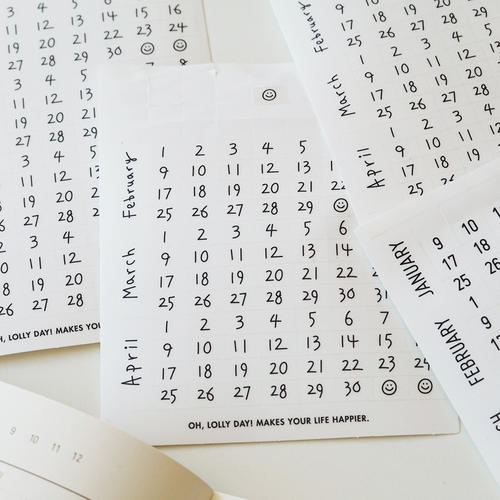 13 14 15 16
19 20 21 22 23 24
27 28 29 30 ☺ ☺
3 4 5
11 12 13
19 20 21
27 28 29
3 4 5
11 12 13
19 20
27 28
2 3 4
10 11 12
18 19 20
26 27 28
OH, LOLLY DAY! MAKES YOU
☺
February
1 2 3 4 5
9 10 11 12 13
17 18 19 20 21 22
25 26 27 28 29 ☺
March
1 2 3 4 5 6
9 10 11 12 13 14
17 18 19 20 21 22
25 26 27 28 29 30 31
April
1 2 3 4 5 6 7
9 10 11 12 13 14 15
17 18 19 20 21 22 23 24
25 26 27 28 29 30 ☺ ☺
OH, LOLLY DAY! MAKES YOUR LIFE HAPPIER.
February
9 10 11
17 18 19 20
25 26 27 28
March
1 2 3 4 5
9 10 11 12
17 18 19 20
25 26 27 28
April
1 2 3 4
9 10 11 12
17 18 19
25 26
JANUARY
9 10
17 18
25 26
FEBRUARY
1
9
9 10 11 12